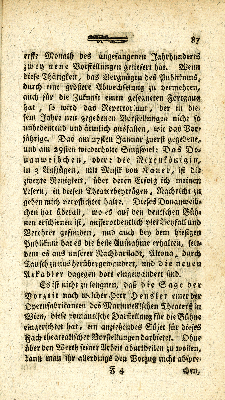 87
erste Monath des angefangenen Jahrhunderts
zwey neue Vorstellungen geliefert hat. Wenn
diese Thätigkeit, das Vergnügen des Publikums,
durch eine größere Abwechselung zu vermehren,
auch für die Zukunft einen gesegneten Fortgang
hat, so wird das Repertorium, der in die-
sem Jahre neu gegebenen Vorstellungen nicht so
unbedeutend und ärmlich ausfallen, wie das Vor-
jährige. Das am Januar zuerst gegebene,
und am wiederholte Singspiel: Das Do-
nauweibchen, oder die Nixenkönigin,
in 3 Aufzügen, mit Musik von Kauer, ist die
zweyte Neuigkeit, über deren Erfolg ich meinen
Lesern, in diesen Theaterbeyträgen, Nachricht zu
geben mich verpflichtet halte. Dieses Donauweib-
chen hat überall, wo es auf den deutschen Büh-
nen erschienen ist, außerordentlich viel Beyfall und
Verehrer gefunden, und auch bey dem hiesigen
Publikum hat es die beste Aufnahme erhalten, seit-
dem es aus unserer Nachbarstadt, Altona, durch
Tausch zu uns herübergewandert, und die neuen
Arkadier dagegen dort eingewandert sind.
Es ist nicht zu leugnen, daß die Sage der
Vorzeit nach welcher Herr Hensler einer der
Opernfabrikanten des Marinellischen Theaters in
Wien, diese romantische Darstellung für die Bühne
eingerichtet hat, ein anziehendes Süjet für dieses
Fach theatralischer Vorstellungen darbietet. Ohne
über den Werth seiner Arbeit aburtheilen zu wollen,
kann man ihr allerdings den Vorzug nicht abspre-
F 4
chen,